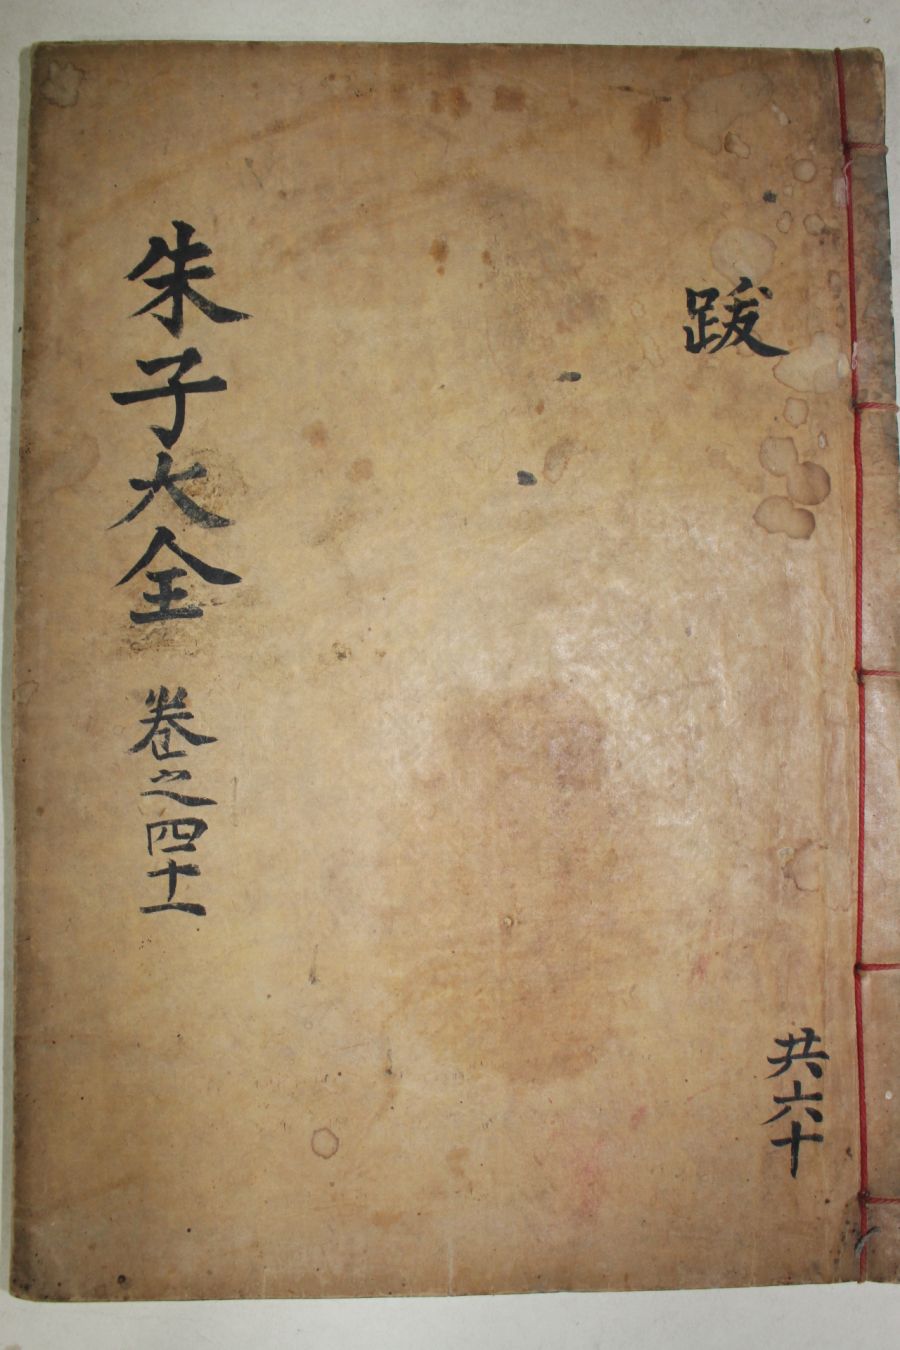 跋
共六十
朱子大全 卷之四十一